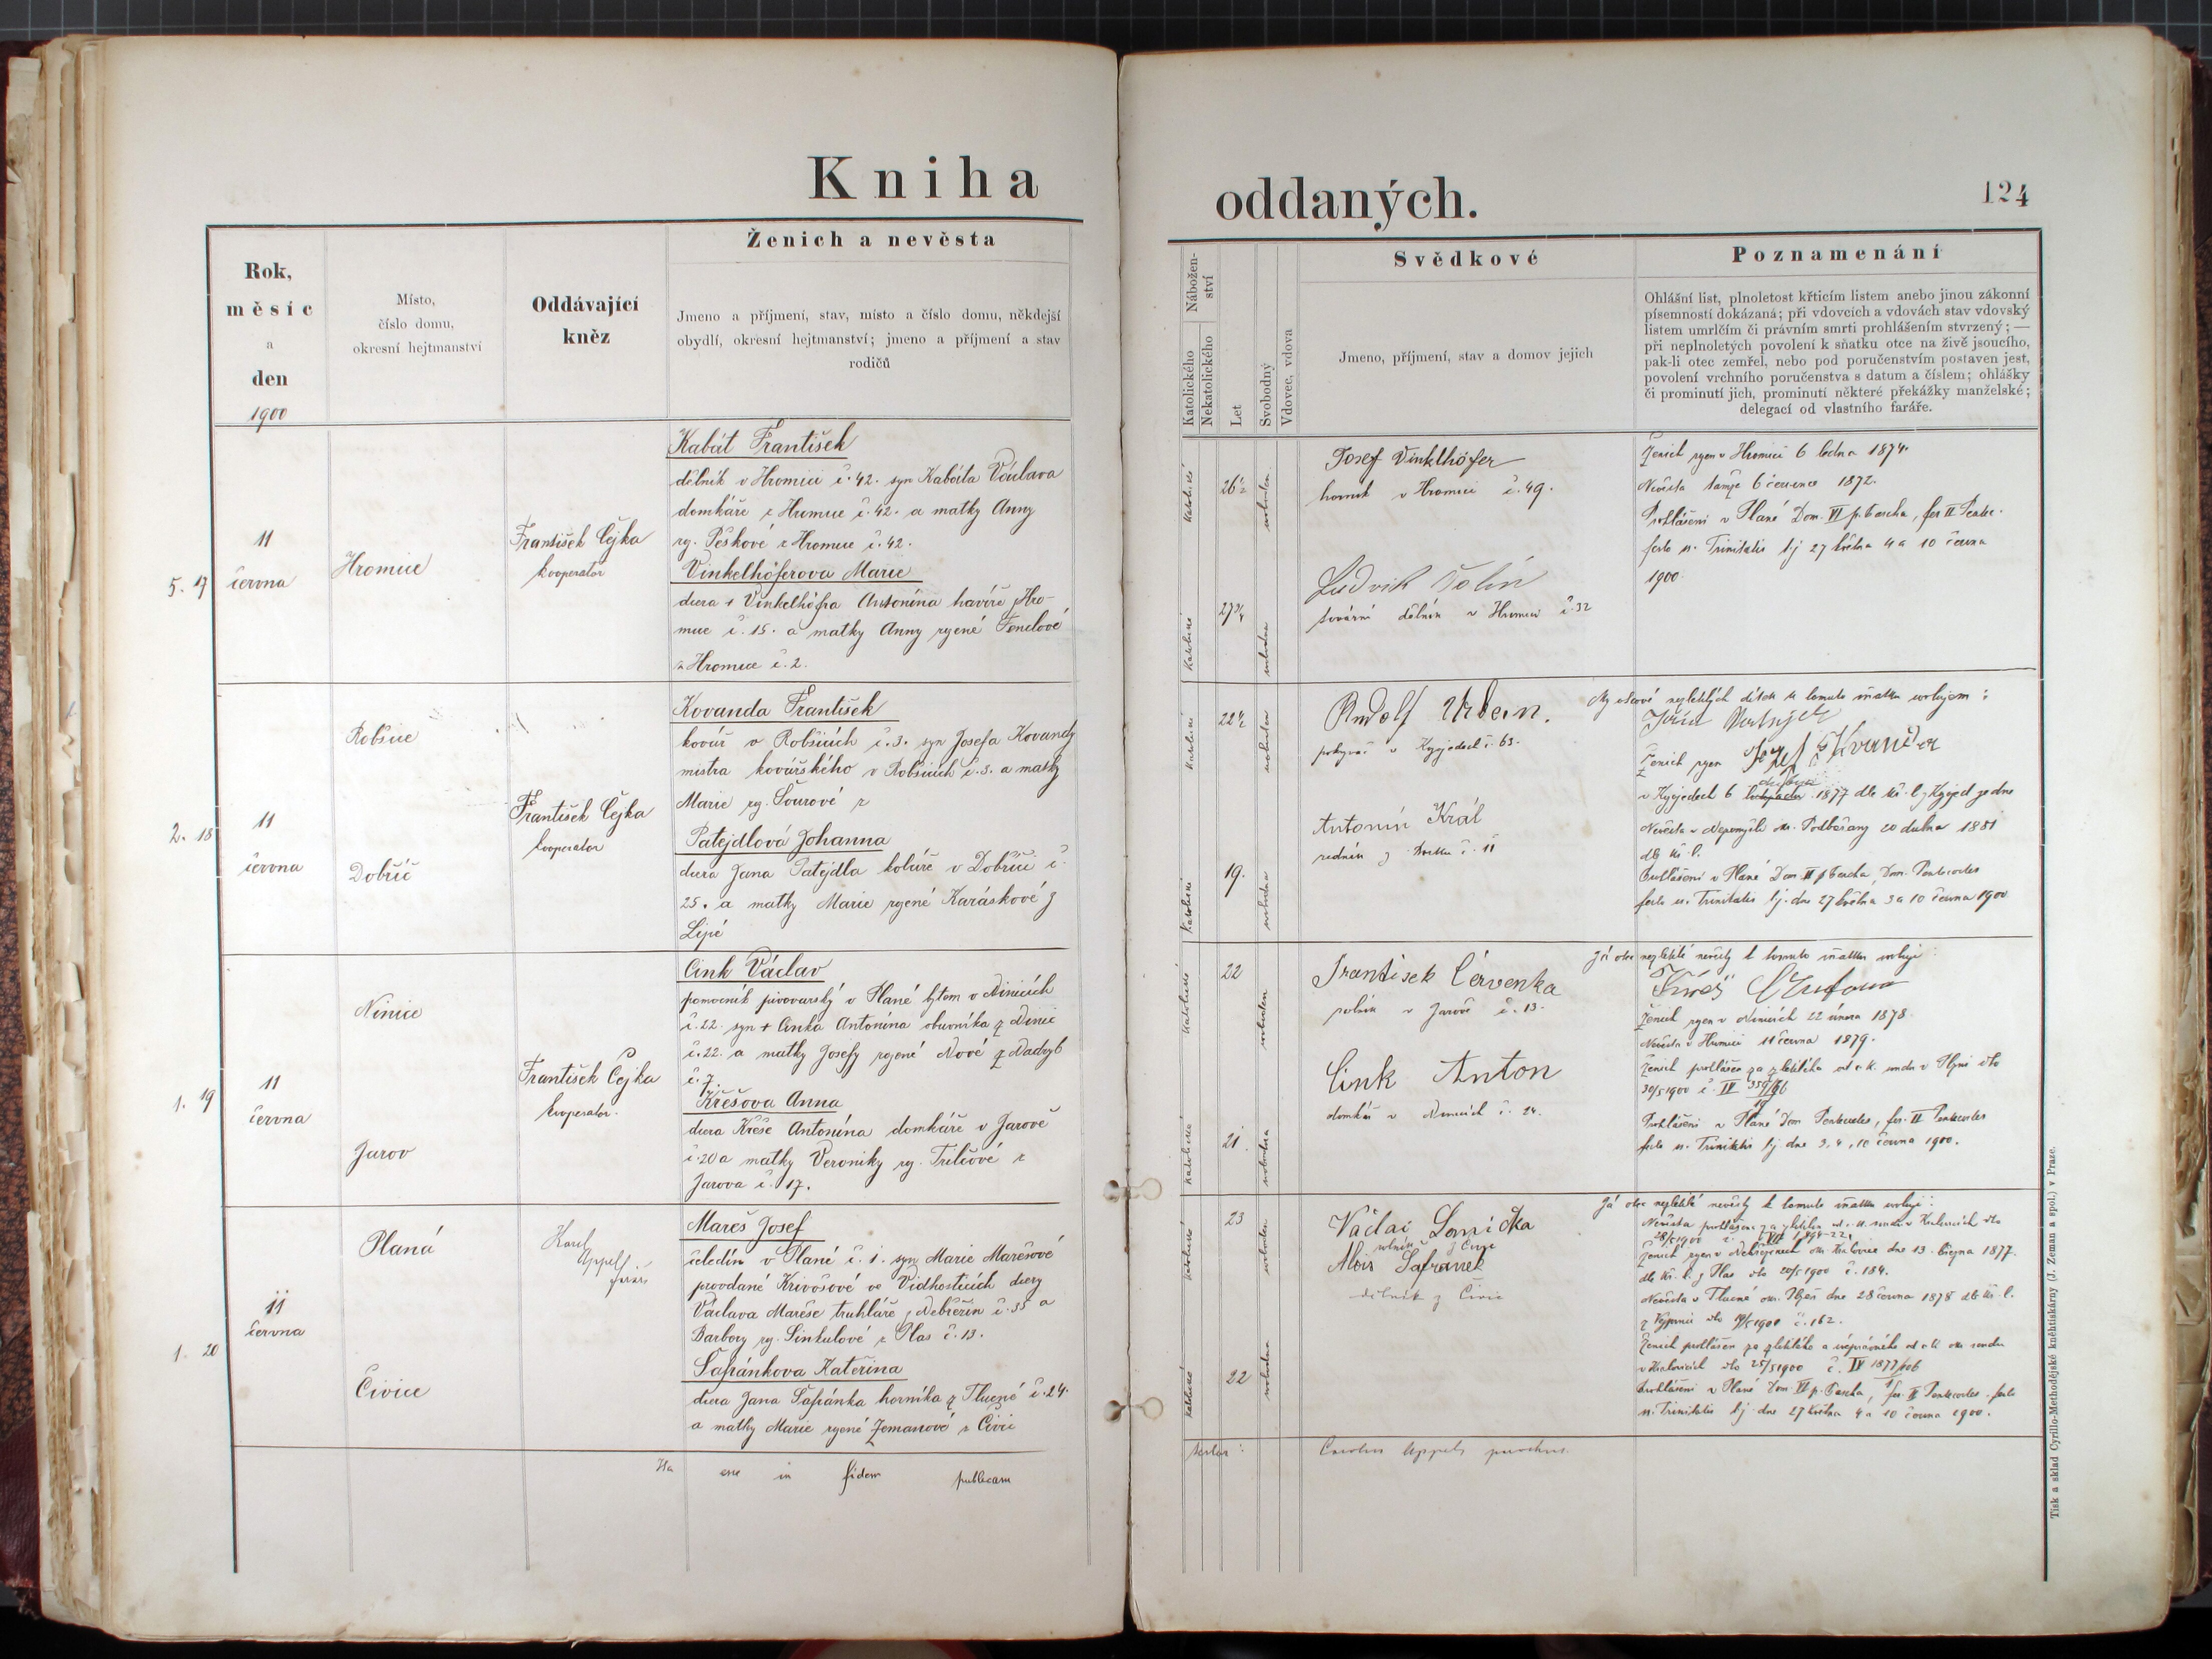 Kniha
oddaných.
124
Rok,
měsíc
a
den
1900
Místo,
číslo domu,
okresní hejtmanství
Oddávající
kněz
Ženich a nevěsta
Jmeno a příjmení, stav, místo a číslo domu, někdejší
obydlí, okresní hejtmanství; jmeno a příjmení a stav
rodičů
Nábožen-
ství
Katolického
Nekatolického
Let
Svobodný
Vdovec, vdova
Svědkové
Jmeno, příjmení, stav a domov jejich
Poznamenání
Ohlášní list, plnoletost křticím listem anebo jinou zákonní
písemností dokázaná; při vdovcích a vdovách stav vdovský
listem umrlčím či právním smrti prohlášením stvrzený; —
při neplnoletých povolení k sňatku otce na živě jsoucího,
pak-li otec zemřel, nebo pod poručenstvím postaven jest,
povolení vrchního poručenstva s datum a číslem; ohlášky
či prominutí jich, prominutí některé překážky manželské;
delegací od vlastního faráře.
5. 17
11
června
Hromice
František Čejka
kooperator
Kabát František
dělník v Hromici č. 42. syn Kabáta Václava
domkáře z Hromice č. 42. a matky Anny
rz. Peškové z Hromice č. 42.
Vinkelhöferova Marie
dcera † Vinkelhöfra Antonína havíře z Hro-
mice č. 15. a matky Anny rzené Fenclové
z Hromice č. 2.
26½
27¾
Josef Vinklhöfer
horník v Hromici č. 49.
Ludvik
tovární dělník v Hromici č. 32
Ženich rzen v Hromici 6 ledna 1874.
Nevěsta tamže 6 července 1872.
Prohlášeni v Plané Dom. VI p. Pascha, fer II Pentec.
festo ss. Trinitatis tj 27 května 4 a 10 června
1900.
2. 18
11
června
Robšice
Dobříč
František Čejka
kooperator
Kovanda František
kovář v Robšicích č. 3. syn Josefa Kovandy
mistra kovářského v Robšicích č. 3. a matky
Marie rz. Šourové z
Patejdlová Johanna
dcera Jana Patejdla koláře v Dobříči č.
25. a matky Marie rzené Karáskové z
22½
19.
Rudolf Urban.
pokryvač v Kyjedech č. 63.
Antonín Král
č. 11
My otcové nezletilých dítek k tomuto sňatku svolujem:
Ženich rzen
v Kyjedech 6 listopadu 1877 dle kř. l.
Nevěsta v Nepomyšli okr. Podbořany 20 dubna 1881
dle kř. l.
Prohlášeni v Plané Dom VI p Pascha, Dom. Pentecostes
festo ss. Trinitatis tj. dne 27 května, 3 a 10 června 1900
1. 19
11
června
Ninice
Jarov
František Čejka
kooperator.
Cink Václav
pomocník pivovarský v Plané bytem v Ninicích
č. 22. syn † Cinka Antonína obuvníka z Ninic
č. 22. a matky Josefy rozené Nové z Nadryb
č. 7.
Křešova Anna
dcera Kreše Antonína domkáře v Jarově
č. 20 a matky Veroniky rz. Trilčové z
Jarova č. 17.
22
21
František Červenka
rolník v Jarově č. 13.
Cink Anton
domkář v Ninicích č. 24.
Já otec nezletilé nevěsty k tomuto sňatku svoluji:
Ženich rzen v Ninicích 22 února 1878.
Nevěsta v Hromici 11 června 1879.
Ženich prohlášen za zletilého od c. k. soudu v Plzni dto
30/5 1900 č. IV
Prohlášeni v Plané Dom Pentecostes, fer. II Pentecostes
festo ss. Trinitatis tj dne 3, 4, 10 června 1900.
1. 20
11
června
Planá
Čivice
Karel
Appelt
farář
Mareš Josef
čeledín v Plané č. 1. syn Marie Marešové
provdané Krivošové ve Vidhosticích dcery
Václava Mareše truhláře z Nebřezin č. 35 a
Barbory rz. Sinkulové z Plas č. 13.
Šafránkova Kateřina
dcera Jana Šafránka horníka z Tlucné č. 24.
a matky Marie rzené Zemanové z Čivic
23
22
Václav Lomička
rolník z Čivic
Alois Šafránek
dělník z Čivic
Já otec nezletilé nevěsty k tomuto sňatku svoluji:
Nevěsta prohlášena za zletilou od c. k. soudu v Kralovicích dto
28/5 1900
Ženich rzen v Nebřezinech okr. Kralovice dne 13. března 1877.
dle kř. l. z Plas dto 20/5 1900 č. 184.
Nevěsta v Tlucné okr. Plzeň dne 28 června 1878 dle kř. l.
z Vejprnic dto 19/5 1900 č. 162.
Ženich prohlášen za zletilého a svéprávného od c k okr soudu
v Kralovicích dto 25/5 1900 č. IV
Prohlášeni v Plané Dom VI p. Pascha, fer. II Pentecostes. festo
ss. Trinitatis tj. dne 27 května 4 a 10 června 1900.
Ita esse in fidem publicam
testor: Carolus Appelt parochus.
Tisk a sklad Cyrillo-Methodějské kněhtiskárny (J. Zeman a spol.) v Praze.